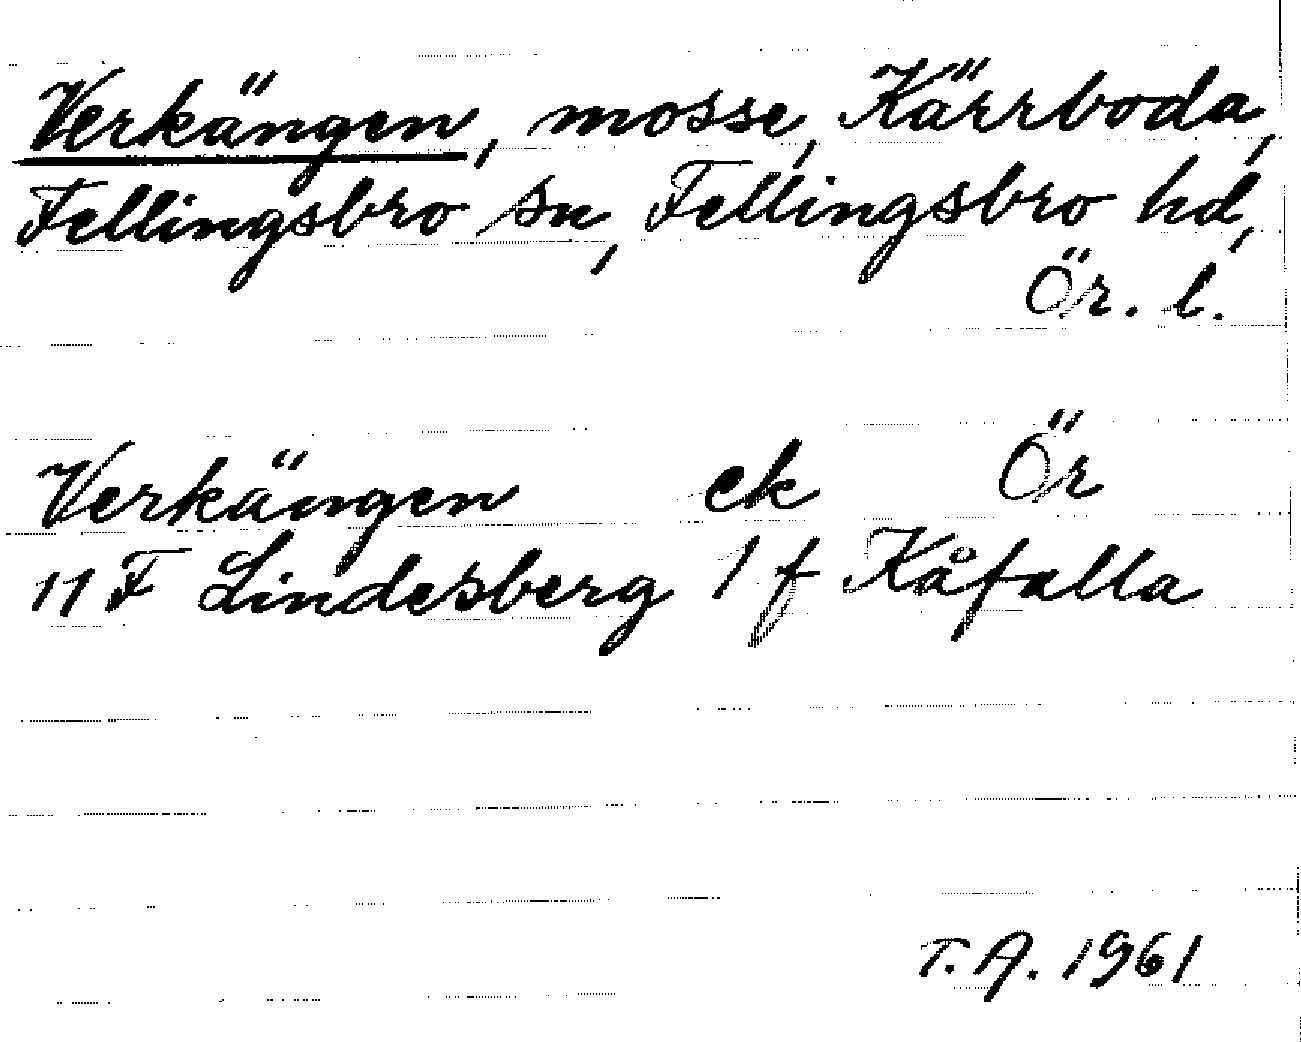 Verkängen, mosse, Kärrboda,
Fellingsbro sn, Fellingsbro hd,
Ör. l.
Verkängen ek Ör
11 F Lindesberg 1 f Kåfalla
T. A. 1961